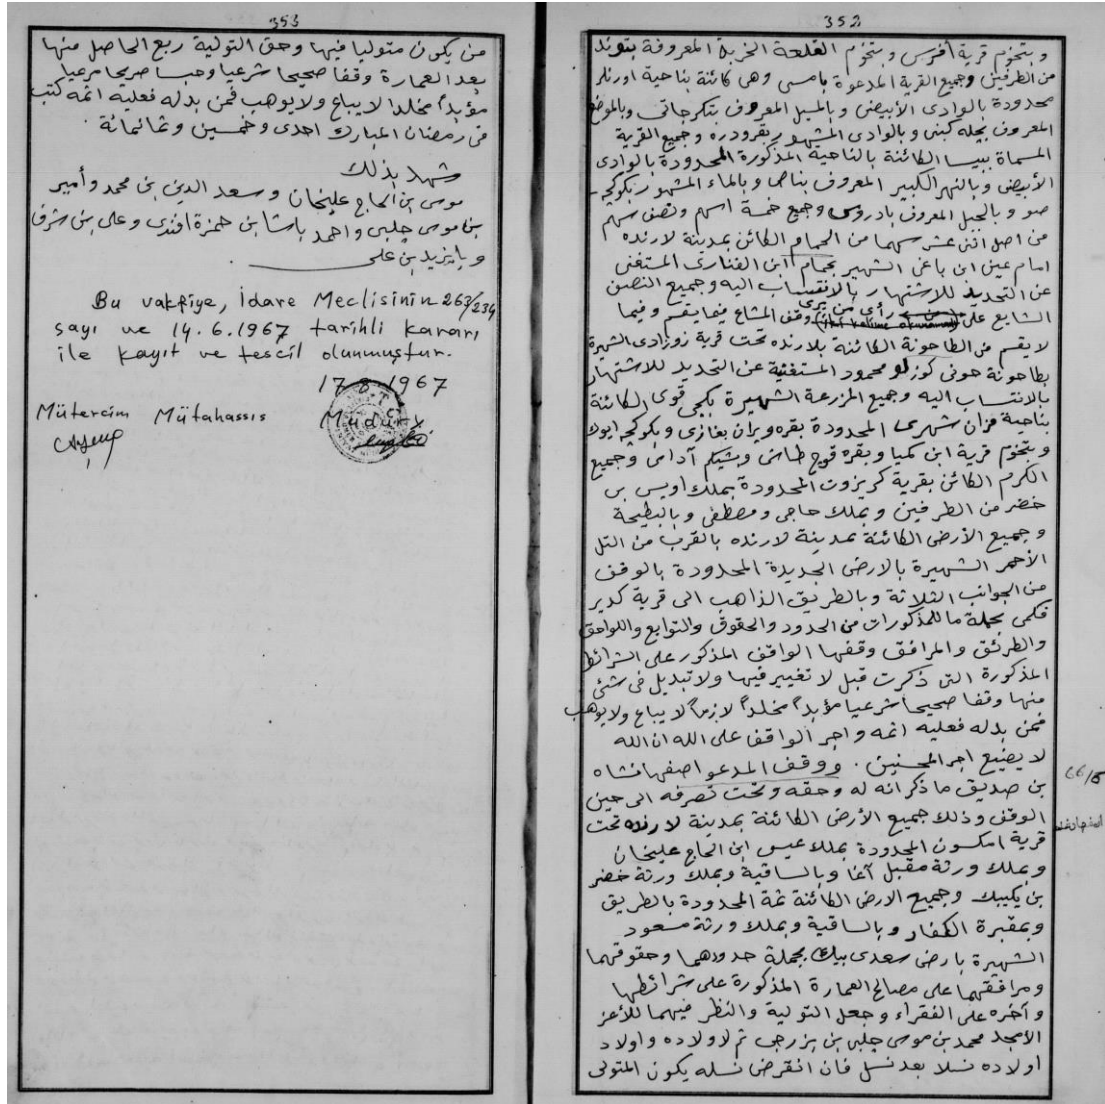 352
و بتخوم قرية افرس و بتخوم القلعة الخربة المعروفة بتوند
من الطرفين وجميع القرية المدعوة بامسى وهى كائنة بناحية اورنلر
محدودة بالوادى الأبيض و بالمسيل المعروف بتكرجاتى وبالموضع
المعروف بجله كبنى و بالوادى المشهور بقرودره و جميع القرية
المسماة ببيسا الكائنة بالناحية المذكورة المحدودة بالوادى
الأبيض و بالنهر الكبير المعروف بناص و بالماء المشهور بكوكجه
صو و بالجبل المعروف بادروس وجميع خمسة اسهم ونصف سهم
من اصل اثنى عشر سهما من الحمام الكائن بمدينة لارنده
امام عين ابن باغى الشهير بحمام ابن الفنارى المستغنى
عن التحديد للاشتهار بالانتساب اليه وجميع النصف
الشايع على رأى من يرى وقف المشاع فيما يقسم وفيما
لا يقسم من الطاحونة الكائنة بلارنده تحت قرية روزادى الشهيرة
بطاحونة حوتى كوزلو محمود المستغنية عن التحديد للاشتهار
بالانتساب اليه وجميع المزرعة الشهيرة بكجى قوى الكائنة
بناحية قزان شهرى المحدودة بقره ويران بغازى و بكوكجه ايولا
و بتخوم قرية ابن كميا و بقره قوج طاش و بشيكم آداس وجميع
الكرم الكائن بقرية كريزوت المحدودة بملك اويس بن
خضر من الطرفين و بملك حاجى ومصطفى و بالبطيحة
و جميع الأرض الكائنة بمدينة لارنده بالقرب من التل
الأحمر الشهيرة بالارض الجديدة المحدودة بالوقف
من الجوانب الثلاثة و بالطريق الذاهب الى قرية كدير
فكمى بجملة ما للمذكورات من الحدود والحقوق والتوابع واللواحق
والطرئق والمرافق وقفها الواقف المذكور على الشرائط
المذكورة التى ذكرت قبل لا تغيير فيها ولا تبديل فى شئى
منها وقفا صحيحا شرعيا مؤبداً مخلداً لازماً لا يباع ولا يوهب
فمن بدله فعليه اثمه واجر الواقف على الله ان الله
لا يضيع اجر المحسنين . ووقف المدعو اصفهانشاه
بن صديق ما ذكر انه له وحقه وتحت تصرفه الى حين
الوقف وذلك جميع الأرض الكائنة بمدينة لارنده تحت
قرية امكسون المحدودة بملك عيسى ابن الحاج عليخان
و بملك ورثة مقبل آغا و بالساقية وبملك ورثة خضر
بن يكيبك وجميع الارض الكائنة ثمة المحدودة بالطريق
و بمقبرة الكفار و بالساقية و بملك ورثة مسعود
الشهيرة بارض سعدى بيك بجملة حدودهما وحقوقهما
ومرافقهما على مصالح العمارة المذكورة على شرائطها
و آخره على الفقراء وجعل التولية والنظر فيهما للأعز
الأمجد محمد بن موسى چلبى بن بزرجى ثم لاولاده واولاد
اولاده نسلا بعد نسل فان انقرض نسله يكون المتولى
66/5
353
من يكون متوليا فيها وحق التولية ربع الحاصل منها
بعد العمارة وقفا صحيحا شرعيا وحبسا صريحا مرعيا
مؤبداً مخلدا لا يباع ولا يوهب فمن بدله فعليه اثمه كتب
فى رمضان المبارك احدى وخمسين وثمانمائة .
شهد بذلك
موسى بن الحاج عليخان و سعد الدين بن محمد وأمير
بن موسى چلبى و احمد باشا بن حمزة افندى و على بن شرف
و بايزيد بن على
Bu vakfiye, İdare Meclisinin 263/234
sayı ve 14.6.1967 tarihli kararı
ile kayıt ve tescil olunmuştur.
17 8 1967
Mütercim Mütahassıs Müdür